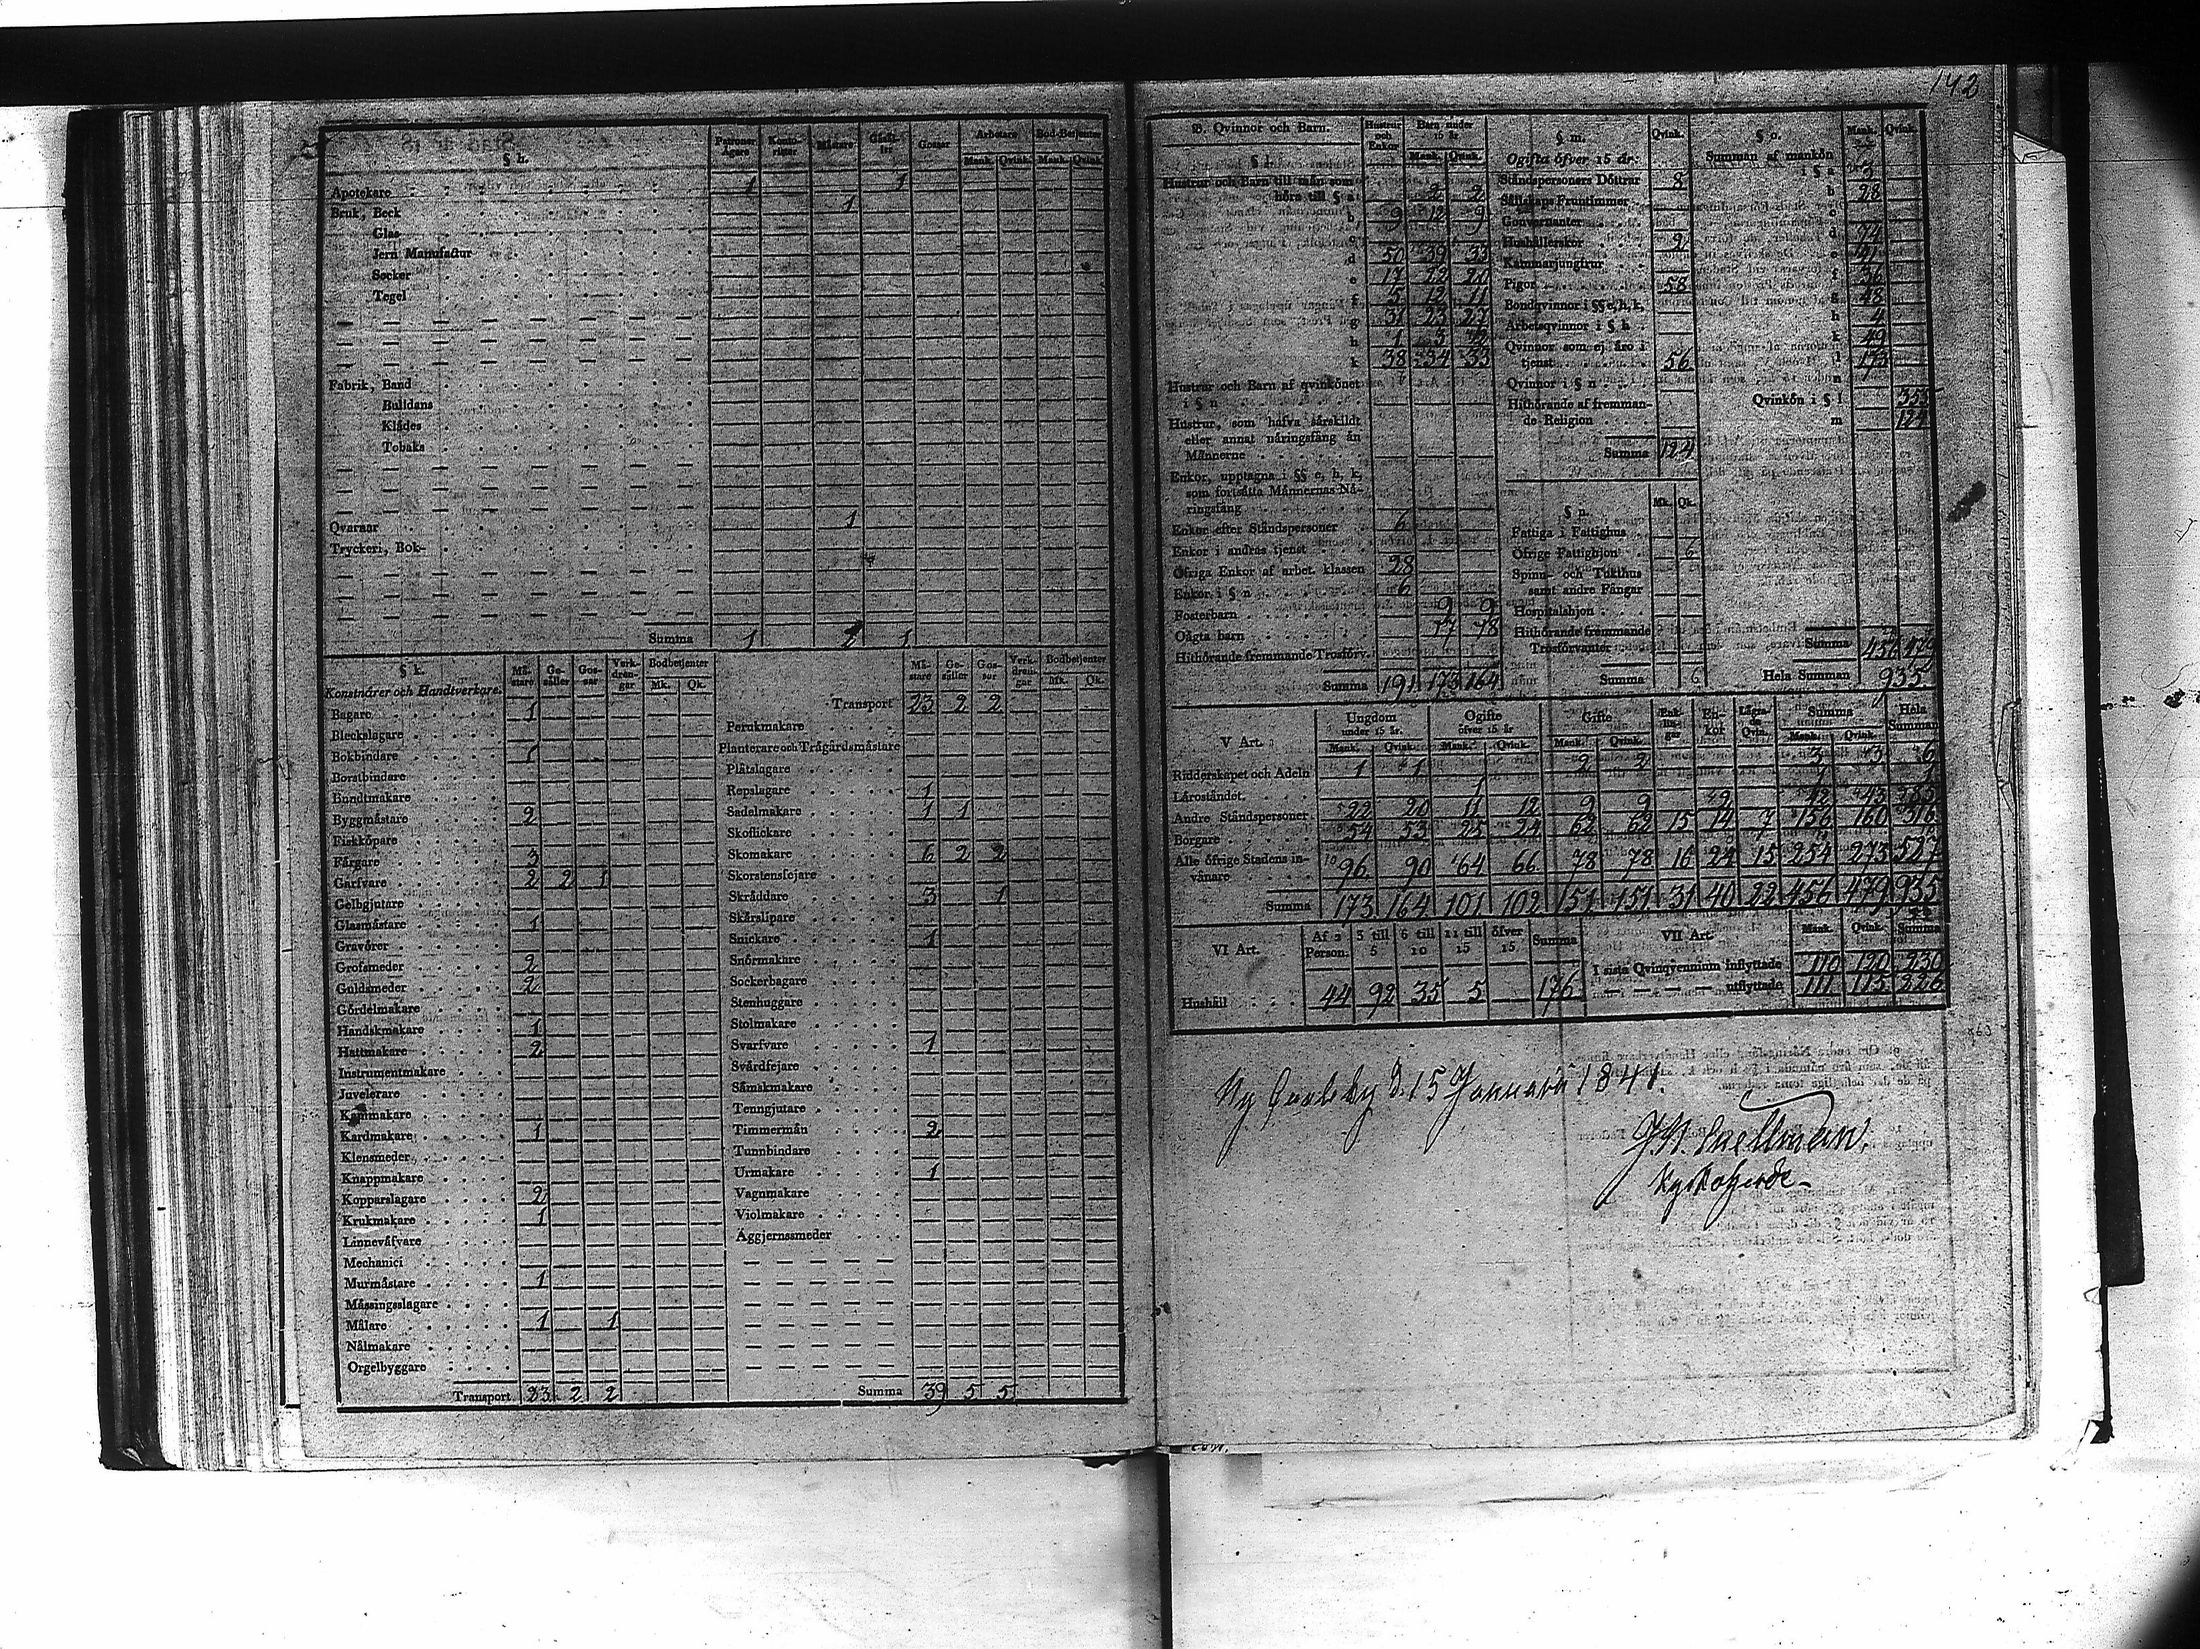 142
§ h. Patroner Ägare Konto-risar Mästare Gesäl-ler Gossar Arbetare Mank. Qvink. Bod-Betjenter Mank. Qvink.
Apotekare 1 1
Bruk, Beck 1
Glas
Jern Manufaktur
Socker
Tegel
Fabrik, Band
Buldans
Klädes
Tobaks
Qvarnar 1
Tryckeri, Bok-
Summa 1 2 1
§ k.
Konstnärer och Handtverkare. Mä-stare Ge-säller Gos-sar Verk-drän-gar Bodbetjenter Mk. Qk.
Bagare 1
Bleckslagare
Bokbindare 1
Borstbindare
Bundtmakare
Byggmästare 2
Fiskköpare
Färgare 3
Garfvare 2 2 1
Gelbgjutare
Glasmästare 1
Gravörer
Grofsmeder 2
Guldsmeder 2
Gördelmakare
Handskmakare 1
Hattmakare 2
Instrumentmakare
Juvelerare
Kammakare
Kardmakare 1
Klensmeder
Knappmakare
Kopparslagare 2
Krukmakare 1
Linneväfvare
Mechanici
Murmästare 1
Mässingsslagare
Målare 1 1
Nålmakare
Orgelbyggare
Transport 23 2 2
Mä-stare Ge-säller Gos-sar Verk-drän-gar Bodbetjenter Mk. Qk.
Transport 23 2 2
Perukmakare
Planterare och Trägårdsmästare
Plåtslagare
Repslagare 1
Sadelmakare 1 1
Skoflickare
Skomakare 6 2 2
Skorstensfejare
Skräddare 3 1
Skärslipare
Snickare 1
Snörmakare
Sockerbagare
Stenhuggare
Stolmakare
Svarfvare 1
Svärdfejare
Sämskmakare
Tenngjutare
Timmermän 2
Tunnbindare
Urmakare 1
Vagnmakare
Violmakare
Äggjernssmeder
Summa 39 5 5
B. Qvinnor och Barn. Hustrur och Enkor Barn under 15 år Mank. Qvink.
§ l.
Hustrur och Barn till män som
höra till § a 2 2
b 9 12 9
c
d 50 39 33
e 17 22 20
f 5 12 11
g 31 23 27
h 1 3
k 38 34 33
Hustrur och Barn af qvinkönet
i § n
Hustrur, som hafva särskildt
eller annat näringsfång än
Männerne
Enkor, upptagna i §§ e, h, k,
som fortsätta Männernas Nä-
ringsfång
Enkor efter Ståndspersoner 6
Enkor i andras tjenst
Öfriga Enkor af arbet. klassen 28
Enkor i § n 6
Fosterbarn 9 9
Oägta barn 17 18
Hithörande fremmande Trosförv.
Summa 191 173 164
§ m. Qvink.
Ogifta öfver 15 år:
Ståndspersoners Döttrar 8
Sällskaps Fruntimmer
Gouvernanter
Hushållerskor 2
Kammarjungfrur
Pigor 58
Bondqvinnor i §§ e, h, k,
Arbetsqvinnor i § h
Qvinnor som ej äro i
tjenst 56
Qvinnor i § n
Hithörande af fremman-
de Religion
Summa 124
§ n. Mk. Qk.
Fattiga i Fattighus
Öfrige Fattighjon 6
Spinn- och Tukthus
samt andre Fångar
Hospitalshjon
Hithörande fremmande
Trosförvanter
Summa 6
§ o. Mank. Qvink.
Summan af mankön
i § a 3
b 28
c
d 74
e
f 36
g 48
h 4
k 49
l 173
n
Qvinkön i § l 355
m 124
Summa 456 479
Hela Summan 935
V Art. Ungdom under 15 år. Mank. Qvink. Ogifte öfver 15 år Mank. Qvink. Gifte Mank. Qvink. Enk-lin-gar En-kor Lägra-de Qvin. Summa Mank. Qvink. Hela Summan
Ridderskapet och Adeln 1 1 2 2 3 3 6
Läroståndet 1 1 1
Andre Ståndspersoner 22 20 11 12 9 9 2 42 43 85
Borgare 54 53 25 24 62 62 15 14 7 156 160 316
Alle öfrige Stadens in-
vånare 96 90 64 66 78 78 16 24 15 254 273 527
Summa 173 164 101 102 151 151 31 40 22 456 479 935
VI Art. Af 2 Person. 3 till 5 6 till 10 11 till 15 öfver 15 Summa
Hushåll 44 92 35 5 176
VII Art. Mank. Qvink. Summa
I sista Qvinqvennium inflyttade 110 120 230
utflyttade 111 115 226
Ny Carleby d. 15 Januari 1841.
J. N. Snellman.
Kyrkoherde